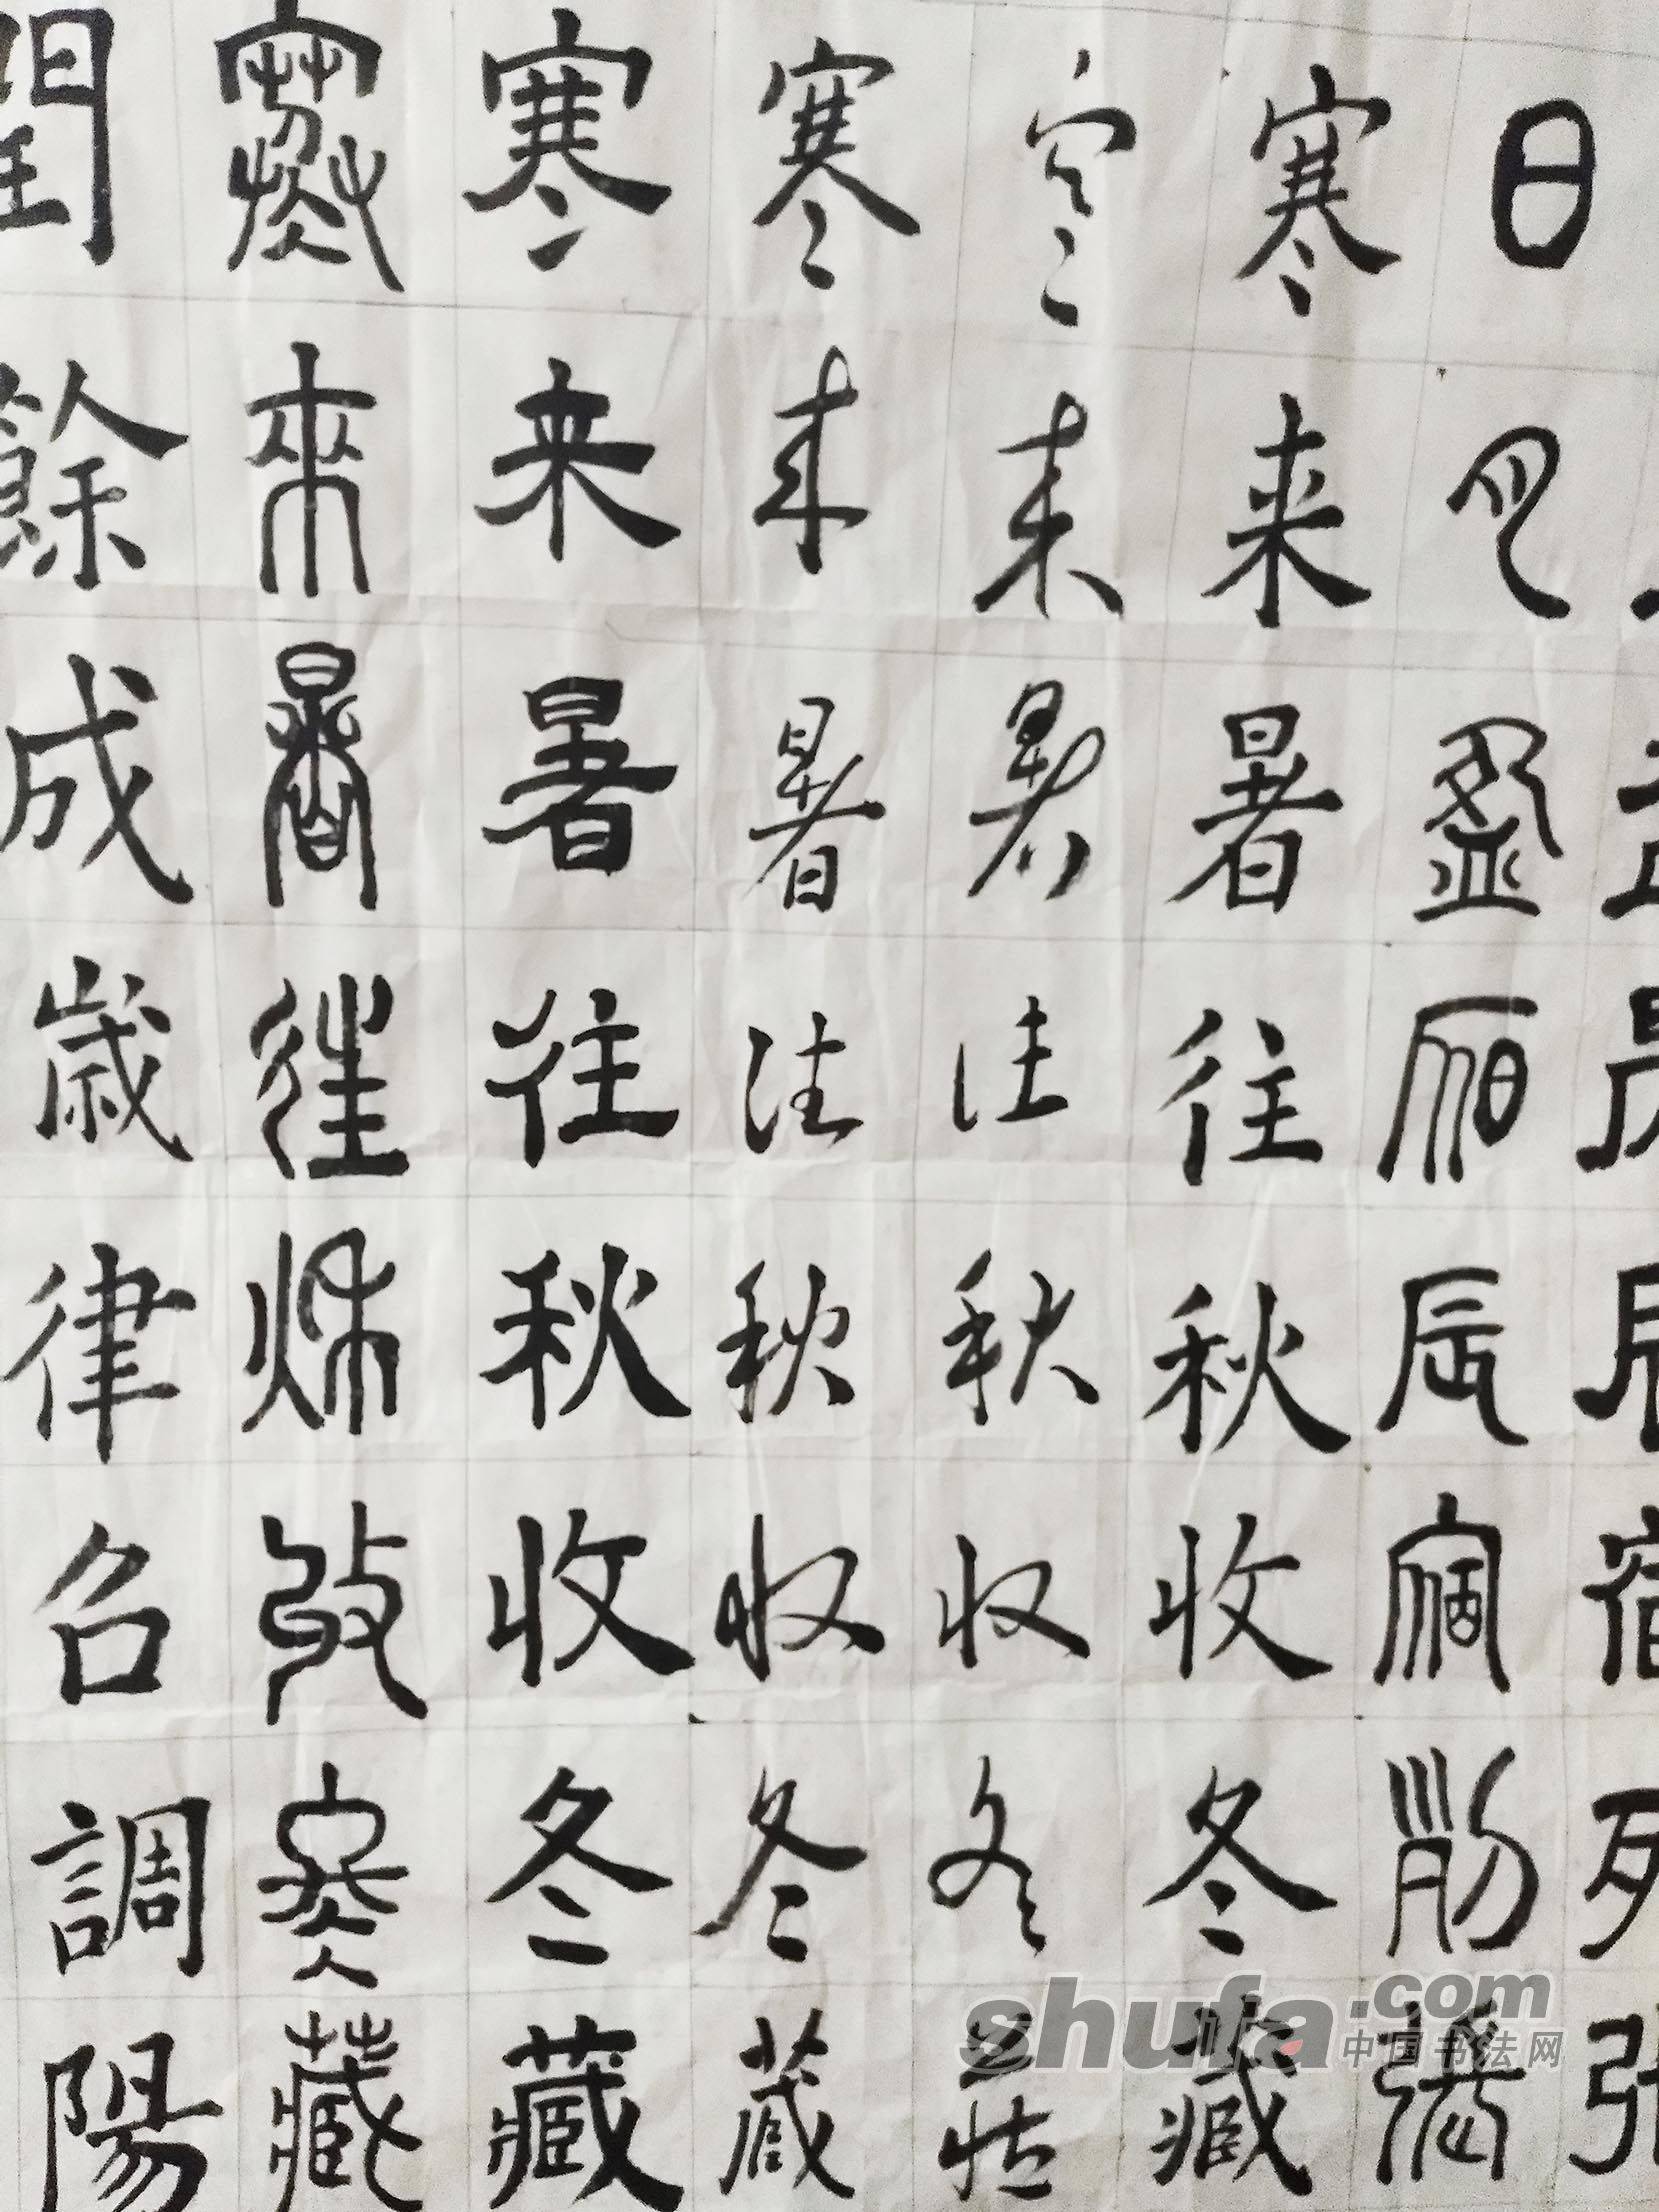 日月盈昃辰宿列張
寒来暑往秋收冬藏
寒来暑往秋收冬藏
寒来暑往秋收冬藏
寒来暑往秋收冬藏
寒來暑往秋收冬藏
閏餘成歲律召調陽
shufa.com
中国书法网